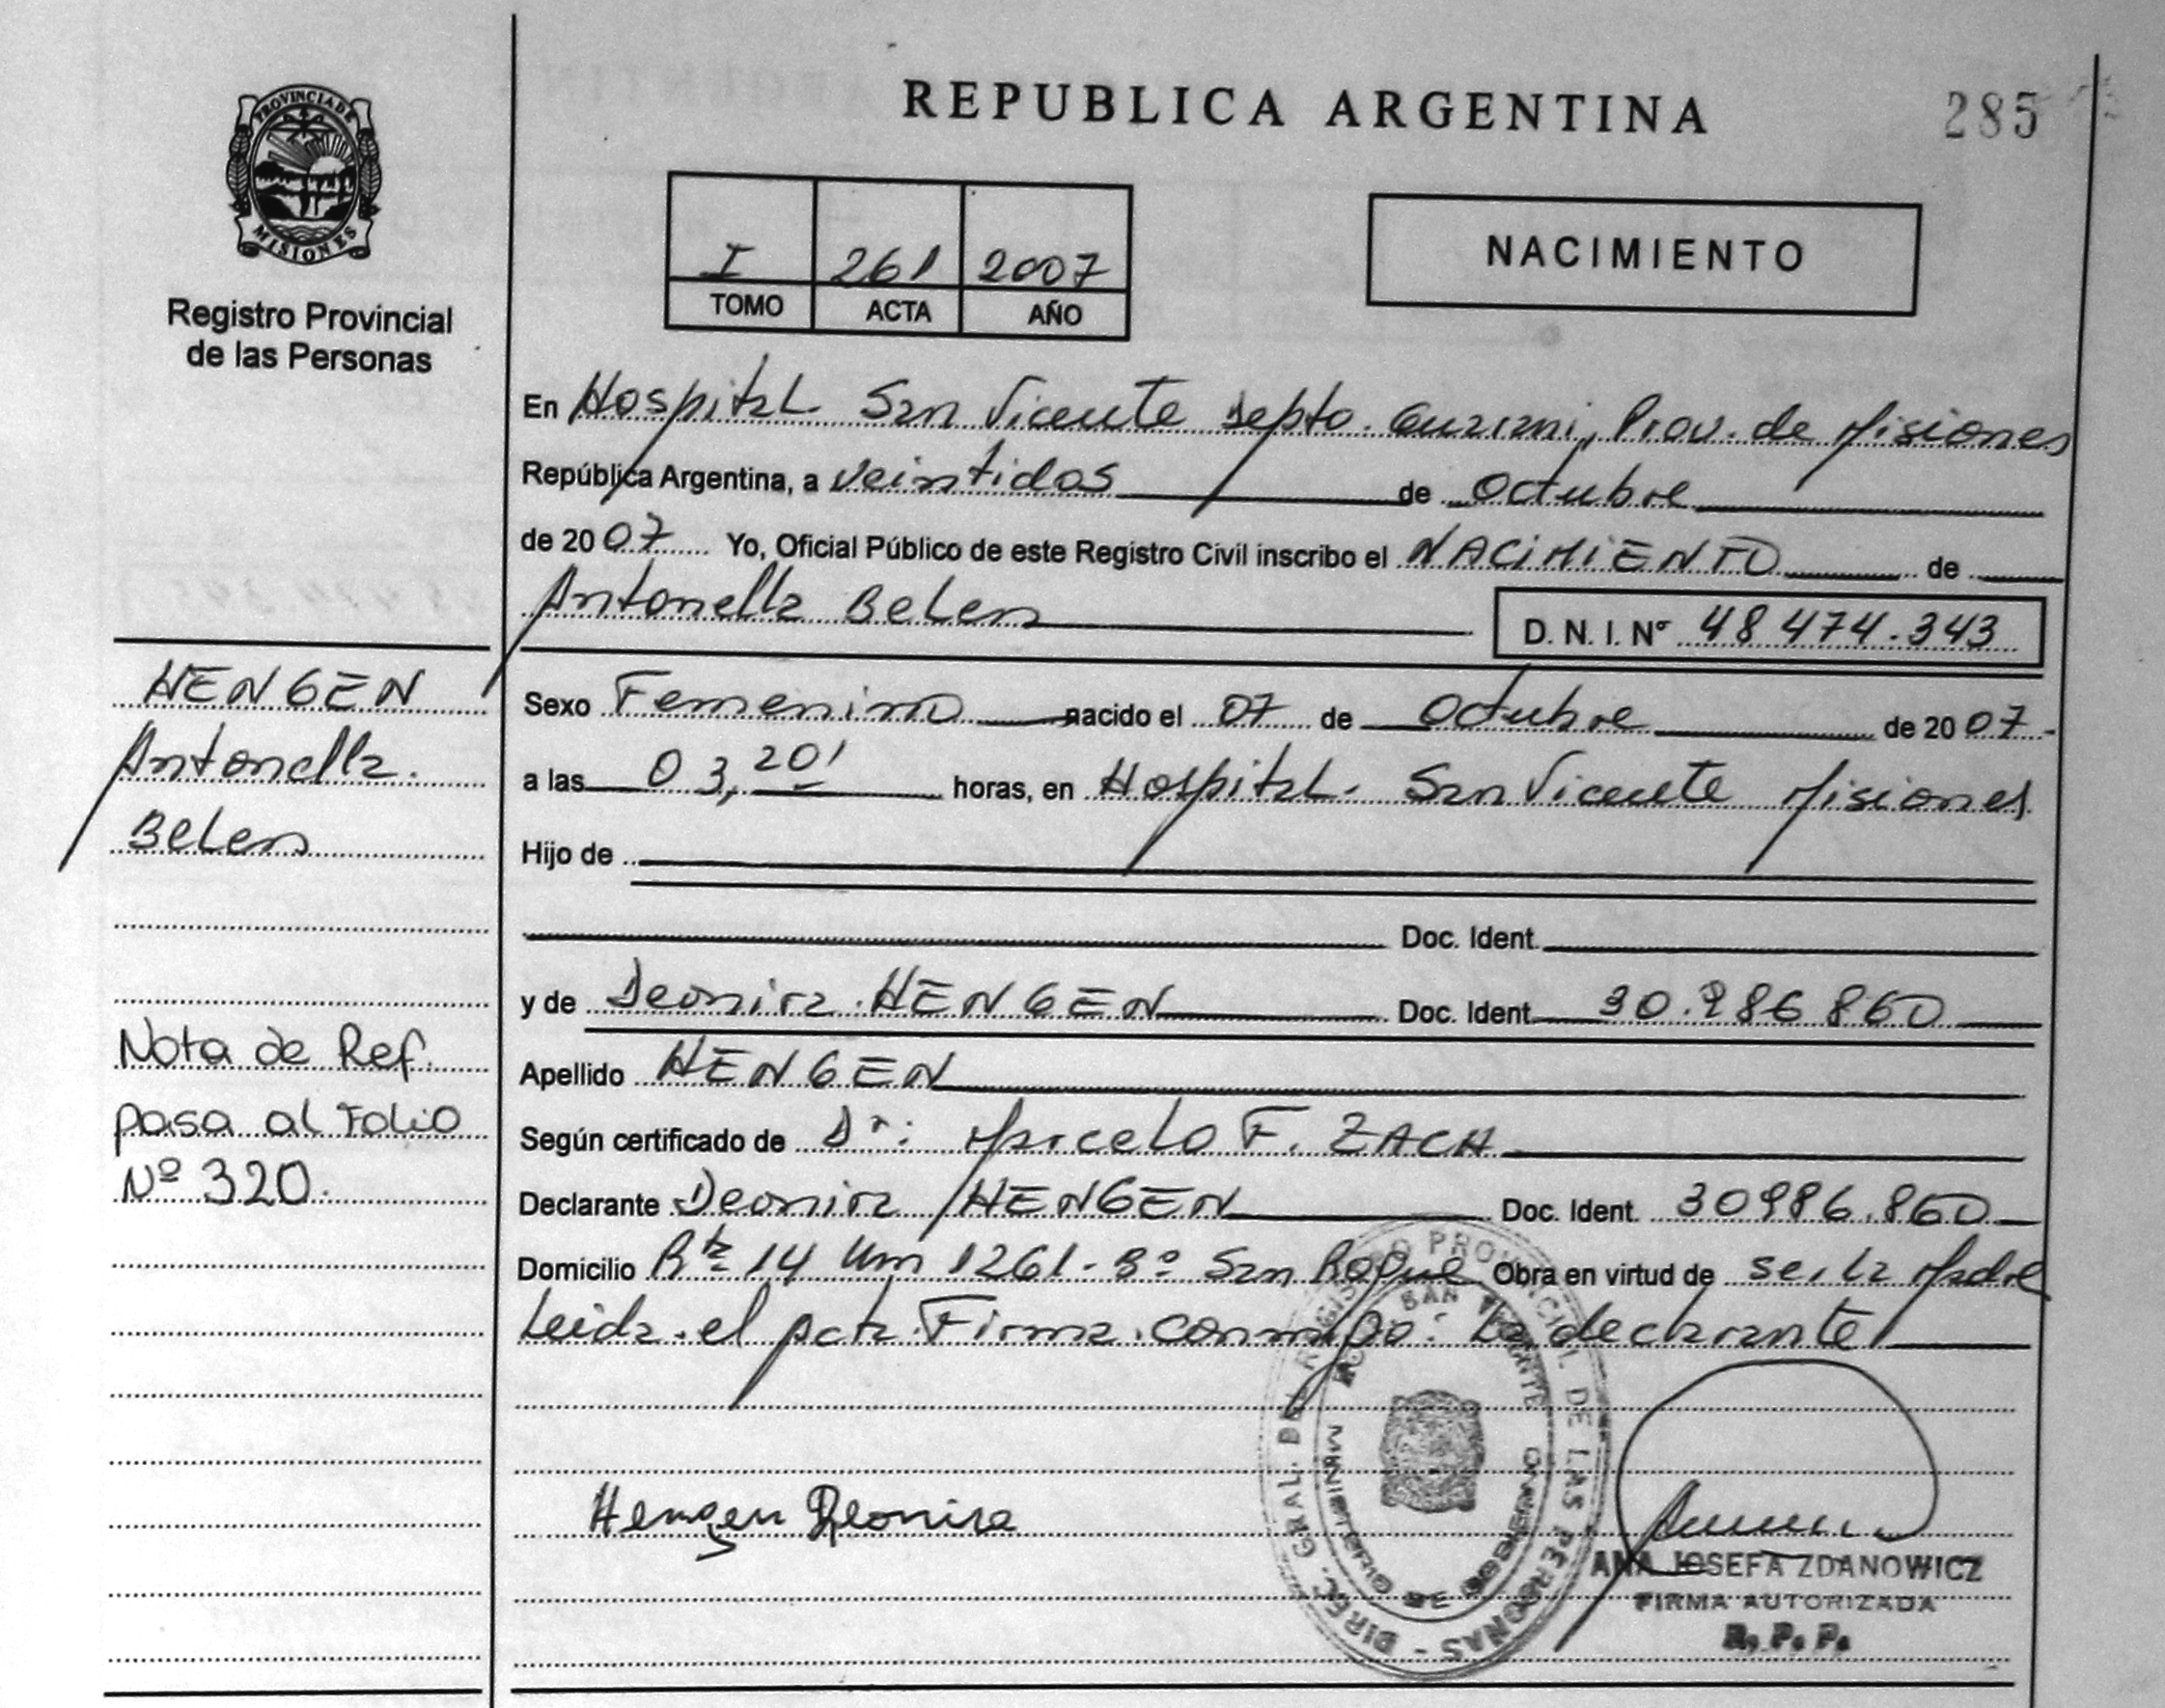 REPUBLICA ARGENTINA
285
PROVINCIA DE
MISIONES
Registro Provincial
de las Personas
I 261 2007
TOMO ACTA AÑO
NACIMIENTO
En Hospital San Vicente Depto. Guarani, Prov. de Misiones
República Argentina, a veintidos de Octubre
de 2007 Yo, Oficial Público de este Registro Civil inscribo el NACIMIENTO de
Antonella Belen
D. N. I. Nº 48 474.343
HENGEN
Antonella
Belen
Nota de Ref.
pasa al Folio
Nº 320.
Sexo Femenino nacido el 07 de Octubre de 2007
a las 03,20' horas, en Hospital San Vicente Misiones
Hijo de
Doc. Ident.
y de Deonira HENGEN Doc. Ident. 30.986 860
Apellido HENGEN
Según certificado de Dr: Marcelo F. ZACH
Declarante Deonira HENGEN Doc. Ident. 30986.860
Domicilio Rta 14 Km 1261 - Bº San Roque Obra en virtud de ser la Madre
Leida el acta Firma conmigo: La declarante
Hengen Deonira
DIREC. GRAL. DEL REGISTRO PROVINCIAL DE LAS PERSONAS
SAN VICENTE
MINISTERIO DE GOBIERNO
ANA JOSEFA ZDANOWICZ
FIRMA AUTORIZADA
R. P. P.